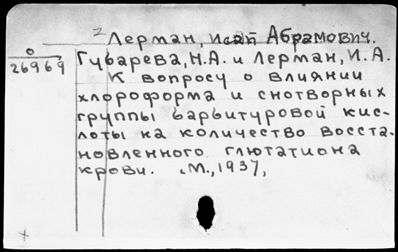 2 Лерман, Исаак Абрамович.
0
26969
Губарева, Н.А. и Лерман, И.А.
К вопросу о влиянии
хлороформа и снотворных
группы барбитуровой кис-
лоты на количество восста-
новленного глютатиона
крови. М., 1937,